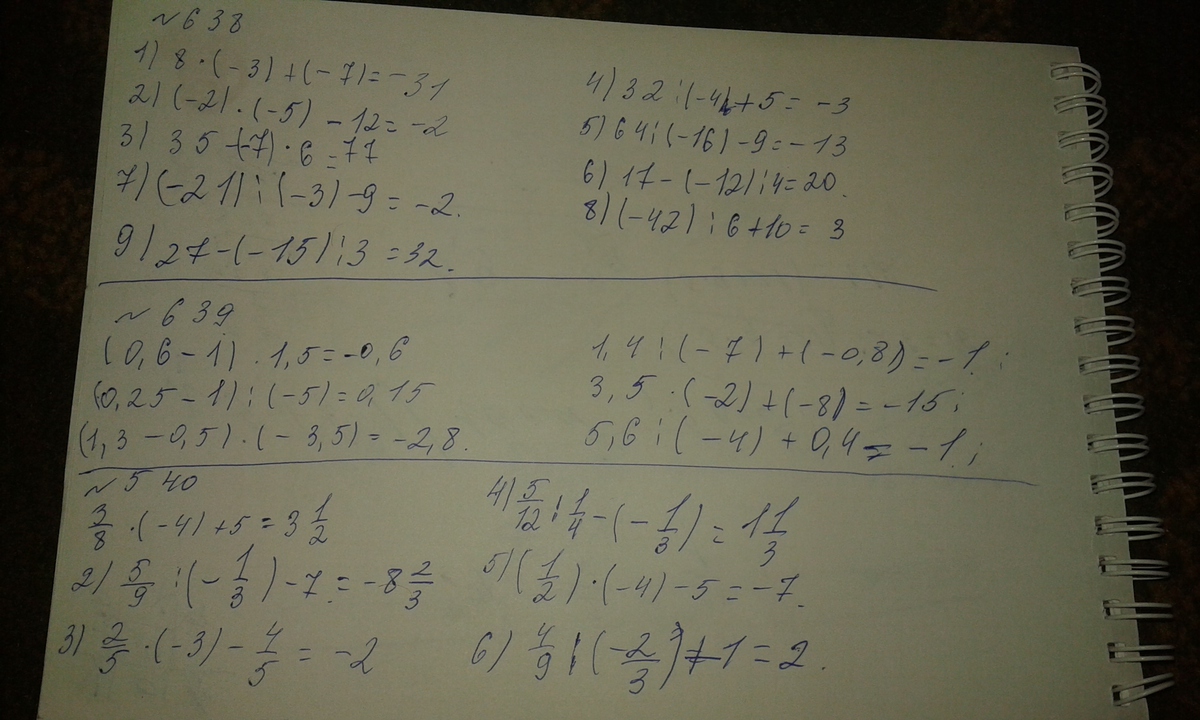 №638
1) 8·(-3)+(-7)=-31
2) (-2)·(-5)-12=-2
3) 35-(-7)·6=77
7) (-21):(-3)-9=-2.
9) 27-(-15):3=32.
4) 32:(-4)+5=-3
5) 64:(-16)-9=-13
6) 17-(-12):4=20.
8) (-42):6+10=3
№639
(0,6-1)·1,5=-0,6
(0,25-1):(-5)=0,15
(1,3-0,5)·(-3,5)=-2,8.
1,4:(-7)+(-0,8)=-1;
3,5·(-2)+(-8)=-15;
5,6:(-4)+0,4=-1;
№540
3/8·(-4)+5=3 1/2
2) 5/9:(-1/3)-7=-8 2/3
3) 2/5·(-3)-4/5=-2
4) 5/12:1/4-(-1/3)=1 1/3
5) (1/2)·(-4)-5=-7.
6) 4/9:(-2/3) 1=2.